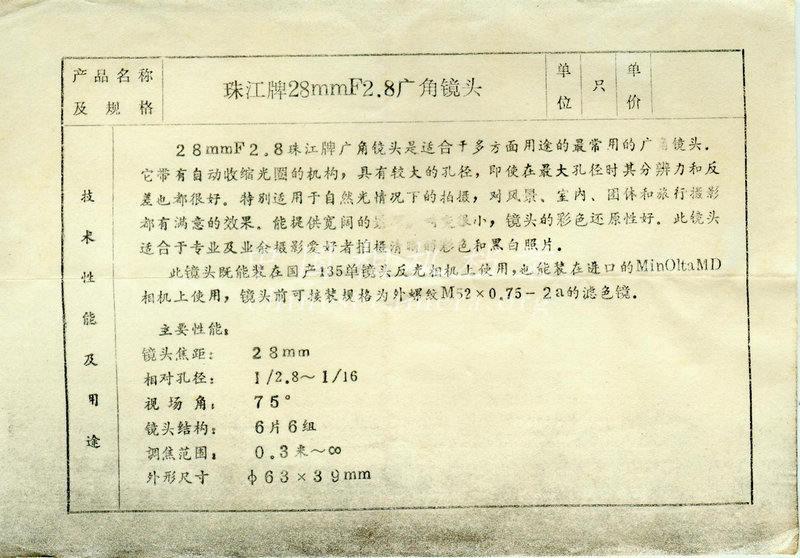 产品名称
及规格
珠江牌28mmF2.8广角镜头
单位
只
单价
技术性能及用途
28mmF2.8珠江牌广角镜头是适合于多方面用途的最常用的广角镜头.
它带有自动收缩光圈的机构,具有较大的孔径,即使在最大孔径时其分辨力和反
差也都很好。特别适用于自然光情况下的拍摄,对风景、室内、团体和旅行摄影
都有满意的效果。能提供宽阔的 很小,镜头的彩色还原性好。此镜头
适合于专业及业余摄影爱好者拍摄清晰的彩色和黑白照片。
此镜头既能装在国产135单镜头反光相机上使用,也能装在进口的MinOltaMD
相机上使用,镜头前可接装规格为外螺纹M52×0.75-2a的滤色镜.
主要性能:
镜头焦距: 28mm
相对孔径: 1/2.8~1/16
视场角: 75°
镜头结构: 6片6组
调焦范围: 0.3米~∞
外形尺寸 φ63×39mm